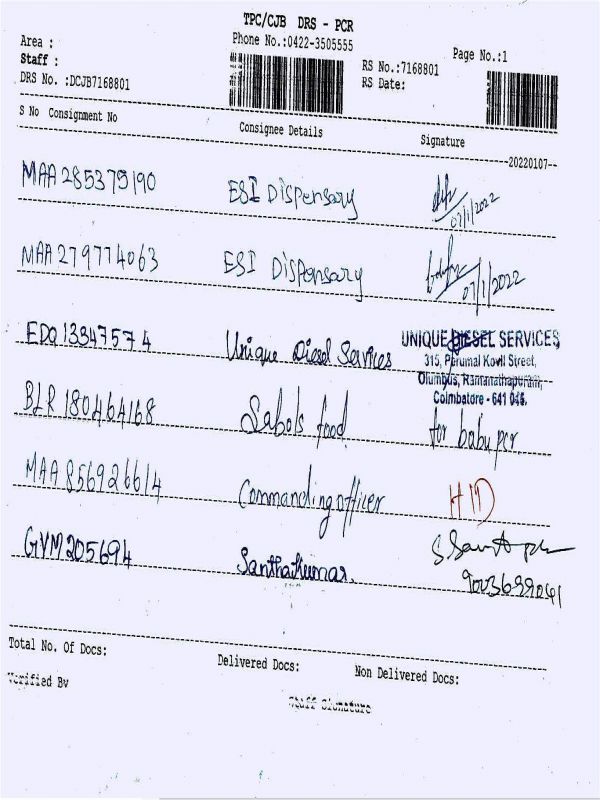 TPC/CJB DRS - PCR
Area :
Phone No.:0422-3505555
Page No.:1
Staff :
RS No.:7168801
DRS No. :DCJB7168801
RS Date:
S No Consignment No
Consignee Details
Signature
--20220107--
MAA 285375190 ESI Dispensary
07/1/2022
MAA 279774063 ESI Dispensary
07/1/2022
EDQ 13347574 Unique Diesel Services
UNIQUE DIESEL SERVICES
315, Perumal Kovil Street,
Olumbus, Ramanathapuram,
Coimbatore - 641 045.
BLR 180464168 Sabols food for babu pcr.
MAA 856926614 Commanding officer
GVM 205694 Santhakumar.
9003699041
Total No. Of Docs:
Delivered Docs:
Non Delivered Docs:
Verified By
Staff Signature